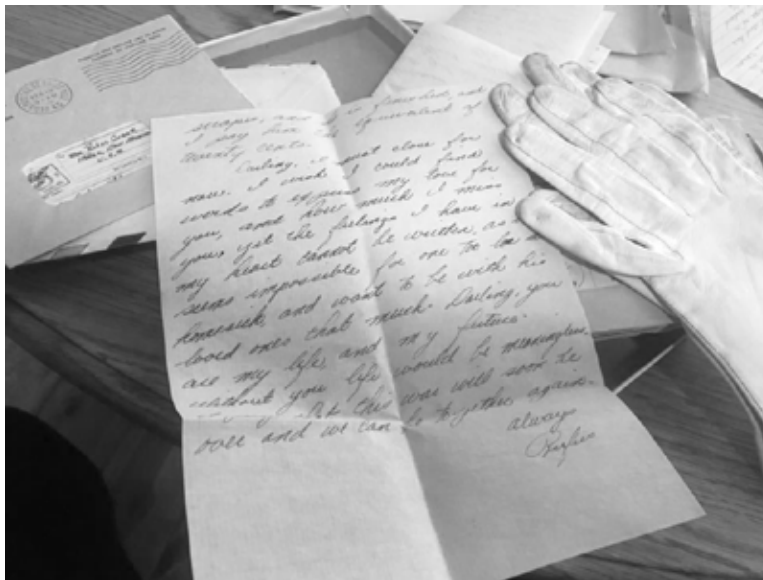 I pay him the equivalent of
twenty cents.
Darling, I must close for
now. I wish I could find
words to express my love for
you, and how much I miss
you, yet the feelings I have in
my heart cannot be written, as it
seems impossible for one to be so
homesick, and want to be with his
loved ones that much. Darling, you
are my life, and my future.
without you life would be meaningless.
this war will soon be
over and we can be together again.
always
Rufus